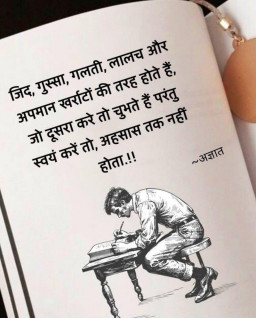 जिद, गुस्सा, गलती, लालच और
अपमान खर्राटों की तरह होते हैं,
जो दूसरा करे तो चुभते हैं परंतु
स्वयं करें तो, अहसास तक नहीं
होता.!!
~अज्ञात